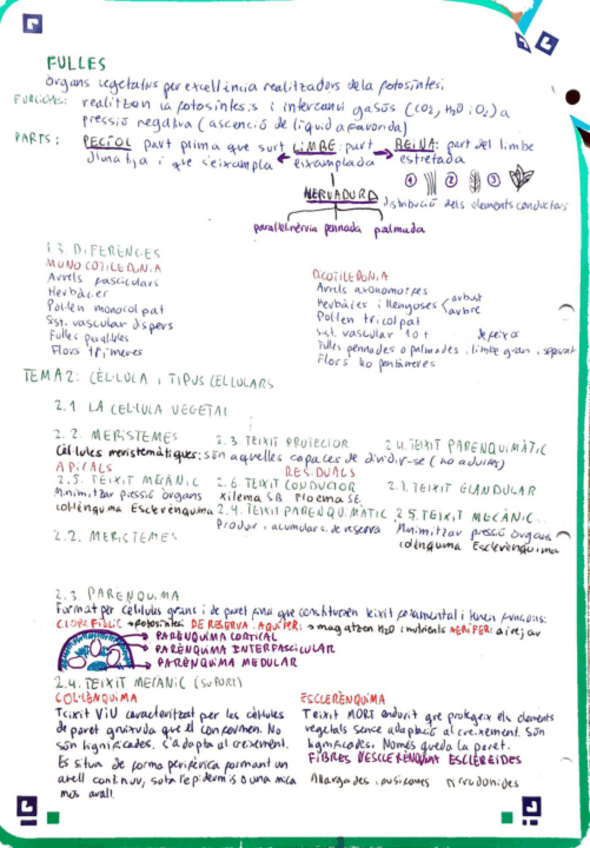 FULLES
òrgans vegetatius per excel·lència realitzadors de la fotosíntesi
FUNCIONS: realitzen la fotosíntesis i intercanvi gasós (CO2, H2O i O2) a
pressió negativa (ascenció de líquid afavorida)
PARTS: PECÍOL part prima que surt LIMBE: part BEINA: part del limbe
d'una tija i que s'eixampla eixamplada estretada
NERVADURA 1 2 3
distribució dels elements conductors
paral·lelinèrvia pennada palmada
1.3. DIFERÈNCIES
MONOCOTILEDÒNIA
Arrels fasciculars
Herbàcies
Pol·len monocolpat
Sist. vascular dispers
Fulles paral·leles
Flors trímeres
DICOTILEDÒNIA
Arrels axonomorfes
Herbàcies i llenyoses arbust
arbre
Pol·len tricolpat
Sist. vascular
Fulles pennades o palmades, limbe gran, separat
Flors no pentàmeres
TEMA 2: CÈL·LULA I TIPUS CEL·LULARS
2.1 LA CEL·LULA VEGETAL
2.2. MERISTEMES 2.3. TEIXIT PROTECTOR 2.4. TEIXIT PARENQUIMÀTIC
Cèl·lules meristemàtiques: són aquelles capaces de dividir-se (no adultes)
APICALS RESIDUALS
2.5. TEIXIT MECÀNIC 2.6. TEIXIT CONDUCTOR 2.7. TEIXIT GLANDULAR
Minimitzar pressió òrgans xilema SB floema SE
col·lènquima Esclerènquima 2.4. TEIXIT PARENQUIMÀTIC 2.5. TEIXIT MECÀNIC
Produir i acumular s. de reserva Minimitzar pressió òrgans
colènquima Esclerènquima
2.2. MERISTEMES
2.3. PARENQUIMA
Format per cèl·lules grans i de paret fina que constitueixen teixit fonamental i tenen funcions:
CLOROFÍL·LIC → fotosíntesi DE RESERVA: AQÜÍFER: → magatzem H2O i nutrients AERÍFER: airejar
PARÈNQUIMA CORTICAL
PARÈNQUIMA INTERFASCICULAR
PARÈNQUIMA MEDULAR
2.4. TEIXIT MECÀNIC (SUPORT)
COL·LÈNQUIMA
Teixit VIU caracteritzat per les cèl·lules
de paret gruixuda que el conformen. No
són lignificades. S'adapta al creixement.
Es situa de forma perifèrica formant un
anell continuu, sota l'epidermis o una mica
més avall.
ESCLERÈNQUIMA
Teixit MORT endurit que protegeix els elements
vegetals sense adaptació al creixement. Són
lignificades. Només queda la paret.
FIBRES D'ESCLERÈNQUIMA ESCLEREIDES
Allargades i fusiformes Arrodonides